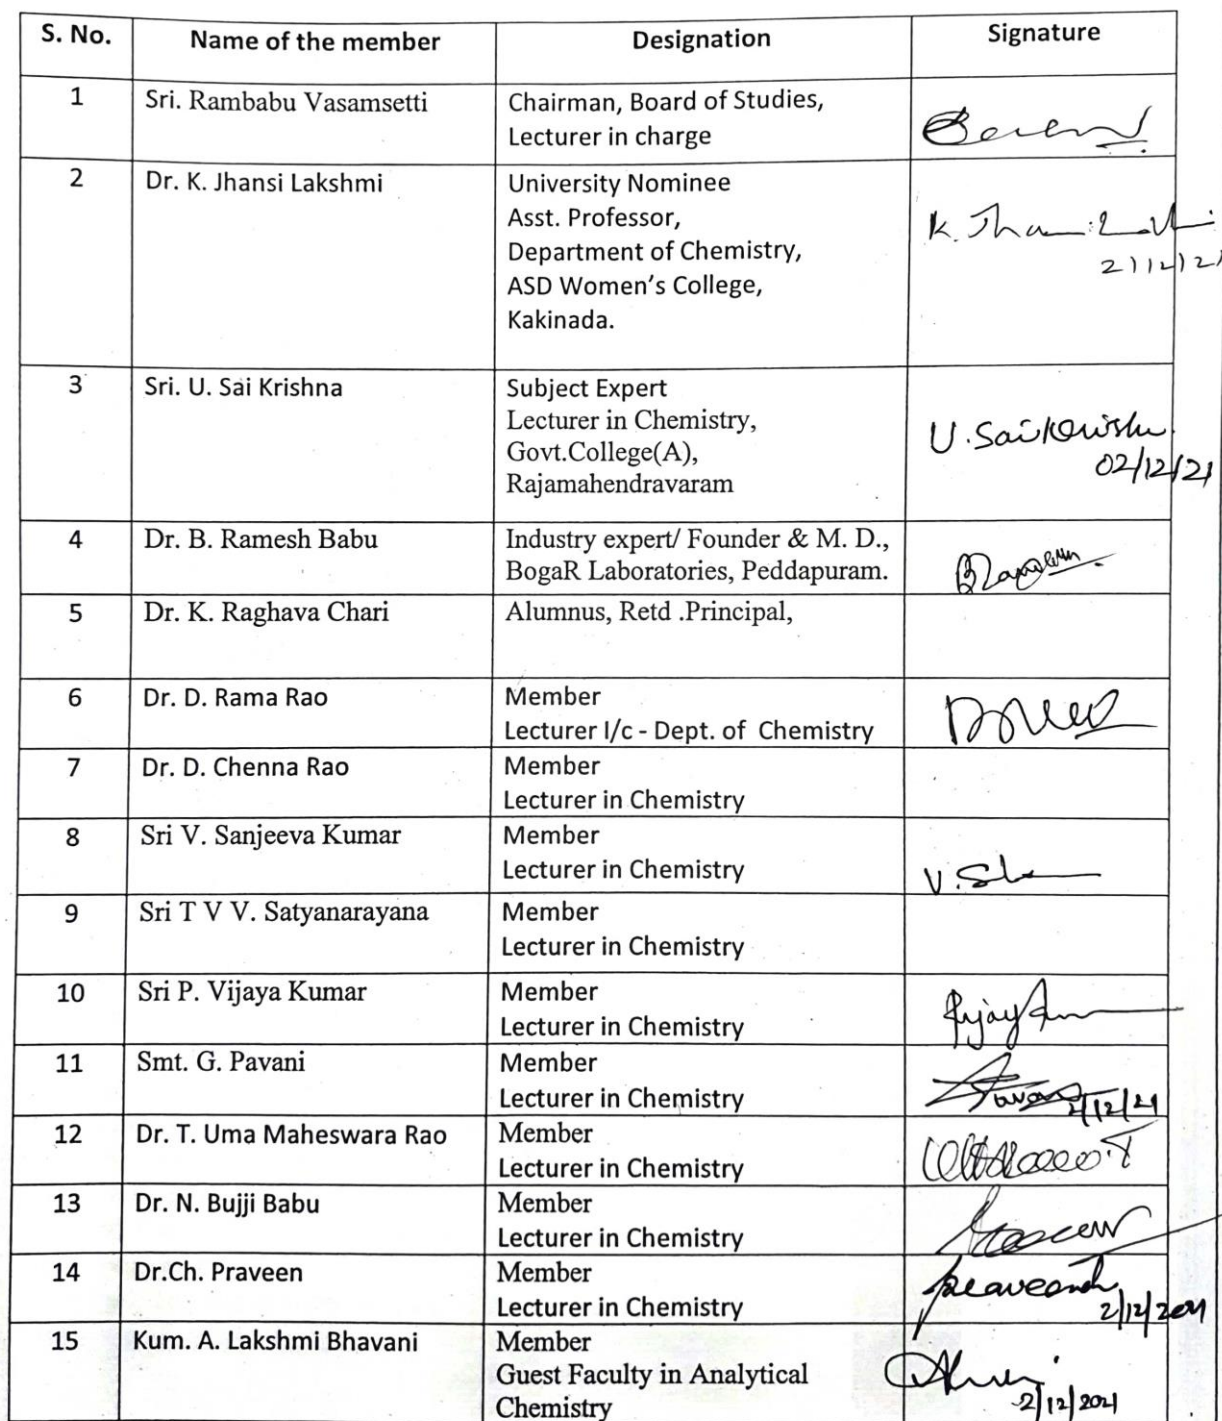 S. No. Name of the member Designation Signature
1 Sri. Rambabu Vasamsetti Chairman, Board of Studies,
Lecturer in charge
2 Dr. K. Jhansi Lakshmi University Nominee
Asst. Professor,
Department of Chemistry,
ASD Women's College,
Kakinada.
K. Jhansi
2/12/21
3 Sri. U. Sai Krishna Subject Expert
Lecturer in Chemistry,
Govt.College(A),
Rajamahendravaram
U. Saikrishna
02/12/21
4 Dr. B. Ramesh Babu Industry expert/ Founder & M. D.,
BogaR Laboratories, Peddapuram.
5 Dr. K. Raghava Chari Alumnus, Retd .Principal,
6 Dr. D. Rama Rao Member
Lecturer I/c - Dept. of Chemistry
7 Dr. D. Chenna Rao Member
Lecturer in Chemistry
8 Sri V. Sanjeeva Kumar Member
Lecturer in Chemistry
9 Sri T V V. Satyanarayana Member
Lecturer in Chemistry
10 Sri P. Vijaya Kumar Member
Lecturer in Chemistry
11 Smt. G. Pavani Member
Lecturer in Chemistry
2/12/21
12 Dr. T. Uma Maheswara Rao Member
Lecturer in Chemistry
13 Dr. N. Bujji Babu Member
Lecturer in Chemistry
14 Dr.Ch. Praveen Member
Lecturer in Chemistry
2/12/2021
15 Kum. A. Lakshmi Bhavani Member
Guest Faculty in Analytical
Chemistry
2/12/2021